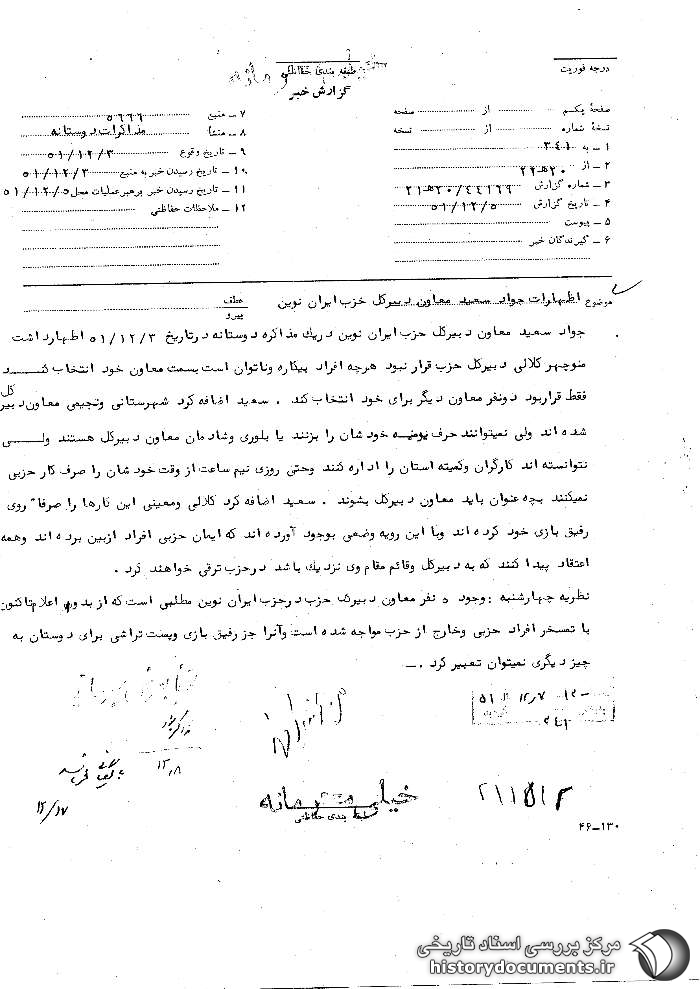 طبقه بندی حفاظتی
درجه فوریت
گزارش خبر
صفحه یکم از صفحه
نسخه شماره از نسخه
۱ ـ به ۳۴۱
۲ ـ از ۲۰هـ۲۲
۳ ـ شماره گزارش ۲۰/۴۴۱۶۹هـ۲۱
۴ ـ تاریخ گزارش ۵۱/۱۲/۵
۵ ـ پیوست
۶ ـ گیرندگان خبر
۷ ـ منبع ۵۶۶۶
۸ ـ منشأ مذاکرات دوستانه
۹ ـ تاریخ وقوع ۵۱/۱۲/۳
۱۰ ـ تاریخ رسیدن خبر به منبع ۵۱/۱۲/۳
۱۱ ـ تاریخ رسیدن خبر برهبر عملیات محل ۵۱/۱۲/۵
۱۲ ـ ملاحظات حفاظتی
موضوع اظهارات جواد سعید معاون دبیرکل حزب ایران نوین
عطف
پیرو
جواد سعید معاون دبیرکل حزب ایران نوین دریک مذاکره دوستانه درتاریخ ۵۱/۱۲/۳ اظهارداشت
منوچهر کلالی دبیرکل حزب قرار نبود هرچه افراد بیکاره وناتوان است بسمت معاون خود انتخاب کند
فقط قراربود دونفر معاون دیگر برای خود انتخاب کند . سعید اضافه کرد شهرستانی ونجیمی معاون دبیرکل
شده اند ولی نمیتوانند حرف یومیه خودشان را بزنند یا بلوری وشادمان معاون دبیرکل هستند ولی
نتوانسته اند کارگران وکمیته استان را اداره کنند وحتی روزی نیم ساعت از وقت خودشان را صرف کار حزبی
نمیکنند بچه عنوان باید معاون دبیرکل بشوند . سعید اضافه کرد کلالی ومعینی این کارها را صرفاً روی
رفیق بازی خود کرده اند وبا این رویه وضعی بوجود آورده اند که ایمان حزبی افراد ازبین برده اند وهمه
اعتقاد پیدا کنند که به دبیرکل وقائم مقام وی نزدیک باشد درحزب ترقی خواهند کرد .
نظریه چهارشنبه : وجود ۵ نفر معاون دبیرکل حزب درحزب ایران نوین مطلبی است که از بدو اعلام تاکنون
با تمسخر افراد حزبی وخارج از حزب مواجه شده است وآنرا جز رفیق بازی وپست تراشی برای دوستان به
چیز دیگری نمیتوان تعبیر کرد . ـ
۳۴۱
۱۲/۸
۱۲/۱۷
خیلی محرمانه
طبقه بندی حفاظتی
۲۱۱۵۱۲
۴۶ـ۱۳۰
مرکز بررسی اسناد تاریخی
historydocuments.ir